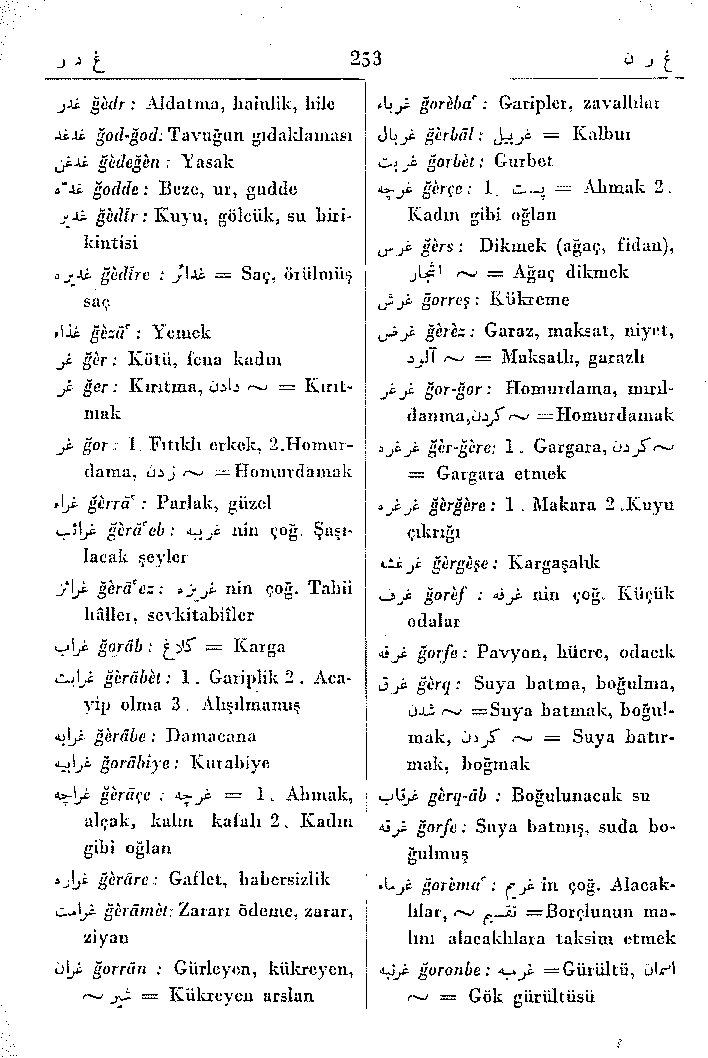 غ د ر
253
غ ر ن
غدر ğèdr : Aldatma, hainlik, hile
غدغد ğod-ğod: Tavuğun gıdaklaması
غدغن ğèdeğèn : Yasak
غده ğodde : Beze, ur, gudde
غدير ğèdîr : Kuyu, gölcük, su biri-
kintisi
غديره ğèdîre : غدائر = Saç, örülmüş
saç
غذاء ğèzâ' : Yemek
غر ğèr : Kötü, fena kadın
غر ğer : Kırıtma, دادن ~ = Kırıt-
mak
غر ğor : 1. Fıtıklı erkek, 2.Homur-
dama, زدن ~ = Homurdamak
غراء ğèrrâ' : Parlak, güzel
غرائب ğèrâ'eb : غريبه nin çoğ. Şaşı-
lacak şeyler
غرائز ğèrâ'ez : غريزه nin çoğ. Tabii
hâller, sevkitabiîler
غراب ğorâb : كلاغ = Karga
غرابت ğèrâbèt : 1. Gariplik 2. Aca-
yip olma 3. Alışılmamış
غرابه ğèrâbe : Damacana
غرابيه ğorâbiye : Kurabiye
غراچه ğèrâçe : غرچه = 1. Ahmak,
alçak, kalın kafalı 2. Kadın
gibi oğlan
غراره ğèrâre : Gaflet, habersizlik
غرامت ğèrâmèt: Zararı ödeme, zarar,
ziyan
غران ğorrân : Gürleyen, kükreyen,
~ شير = Kükreyen arslan
غرباء ğorèba' : Garipler, zavallılar
غربال ğèrbâl : غربيل = Kalbur
غربت ğorbèt : Gurbet
غرچه ğèrçe : 1. پست = Ahmak 2.
Kadın gibi oğlan
غرس ğèrs : Dikmek (ağaç, fidan),
اشجار ~ = Ağaç dikmek
غرش ğorreş : Kükreme
غرض ğèrèz : Garaz, maksat, niyet,
آلود ~ = Maksatlı, garazlı
غرغر ğor-ğor : Homurdama, mırıl-
danma, كردن ~ =Homurdamak
غرغره ğèr-ğère: 1. Gargara, كردن ~
= Gargara etmek
غرغره ğèrğère : 1. Makara 2.Kuyu
çıkrığı
غرغشه ğèrgèşe : Kargaşalık
غرف ğorèf : غرفه nin çoğ. Küçük
odalar
غرفه ğorfe : Pavyon, hücre, odacık
غرق ğèrq : Suya batma, boğulma,
شدن ~ =Suya batmak, boğul-
mak, كردن ~ = Suya batır-
mak, boğmak
غرقاب ğèrq-âb : Boğulunacak su
غرقه ğorfe : Suya batmış, suda bo-
ğulmuş
غرماء ğorèma' : غريم in çoğ. Alacak-
lılar, ~ تقسيم =Borçlunun ma-
lını alacaklılara taksim etmek
غرنبه ğoronbe : غرمبه =Gürültü, آسمان
~ = Gök gürültüsü